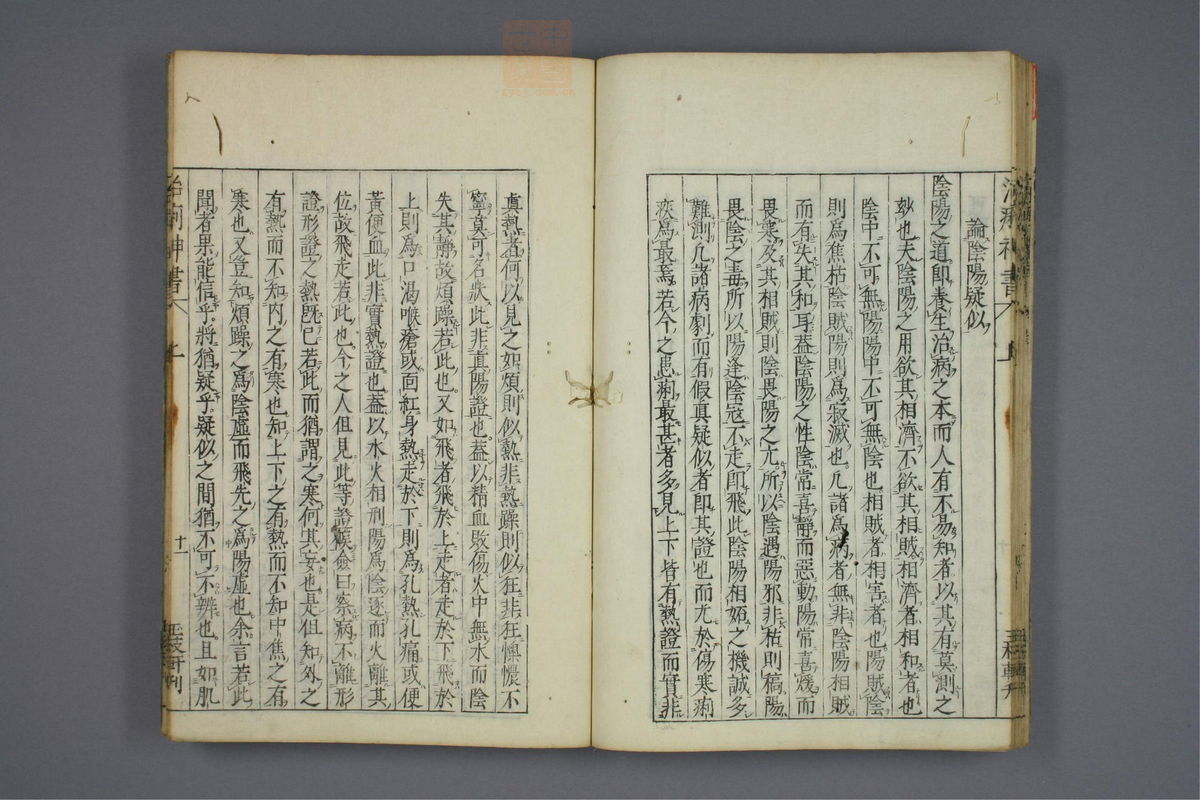 論陰陽疑似
陰陽之道即養生治病之本而人有不易知者以其有莫測之
玅也夫陰陽之用欲其相濟不欲其相賊相濟者相和者也
陰中不可無陽陽中不可無陰也相賊者相害者也陽賊陰
則為焦枯陰賊陽則為寂滅也凡諸為病者無非陰陽相賊
而有失其和耳蓋陰陽之性陰常喜靜而惡動陽常喜煖而
畏寒及其相賊則陰畏陽之亢所以陰遇陽邪非枯則稿陽
畏陰之毒所以陽逢陰冦不走即飛此陰陽相妬之機誠多
難測凡諸病劇而有假真疑似者即其證也而尤於傷寒痢
疾為最焉若今之患痢最甚者多見上下皆有熱證而實非
真熱者何以見之如煩則似熱非熱躁則似狂非狂懊憹不
寧莫可名狀此非真陽證也蓋以精血敗傷火中無水而陰
失其靜故煩躁若此也又如飛者飛於上走者走於下飛於
上則為口渴喉瘡或面紅身熱走於下則為孔熱孔痛或便
黃便血此非實熱證也蓋以水火相刑陽為陰逐而火離其
位故飛走若此也今之人但見此等證候僉曰察病不離形
證形證之熱既已若此而猶謂之寒何其妄也是但知外之
有熱而不知內之有寒也知上下之有熱而不知中焦之有
寒也又豈知煩躁之為陰虛而飛先之為陽虛也余言若此
聞者果能信乎將猶疑乎疑似之間猶不可不辨也且如肌
治痢神書
上
十一